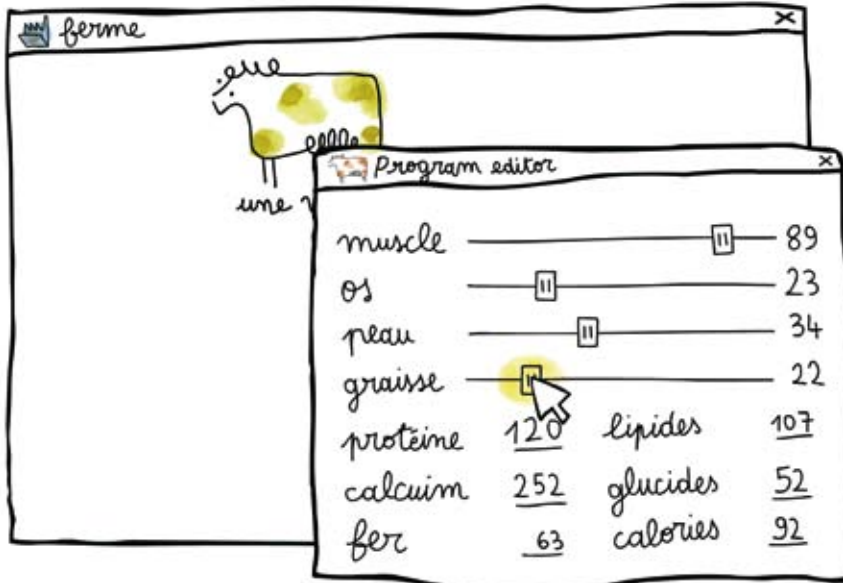 ferme
une
Program editor
muscle 89
os 23
peau 34
graisse 22
protéine 120 lipides 107
calcuim 252 glucides 52
fer 63 calories 92